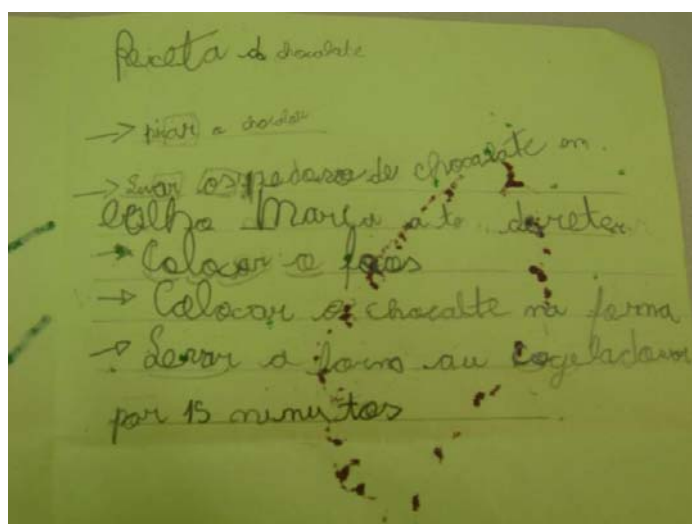 Receta do chocolate
→ picar o chocolate
→ Levar os pedaso de chocolate em
Colho Março a to direter
→ Colocar o focos
→ Colocar o chocalte na forma
→ Levar a form au cogelador
por 15 minutos